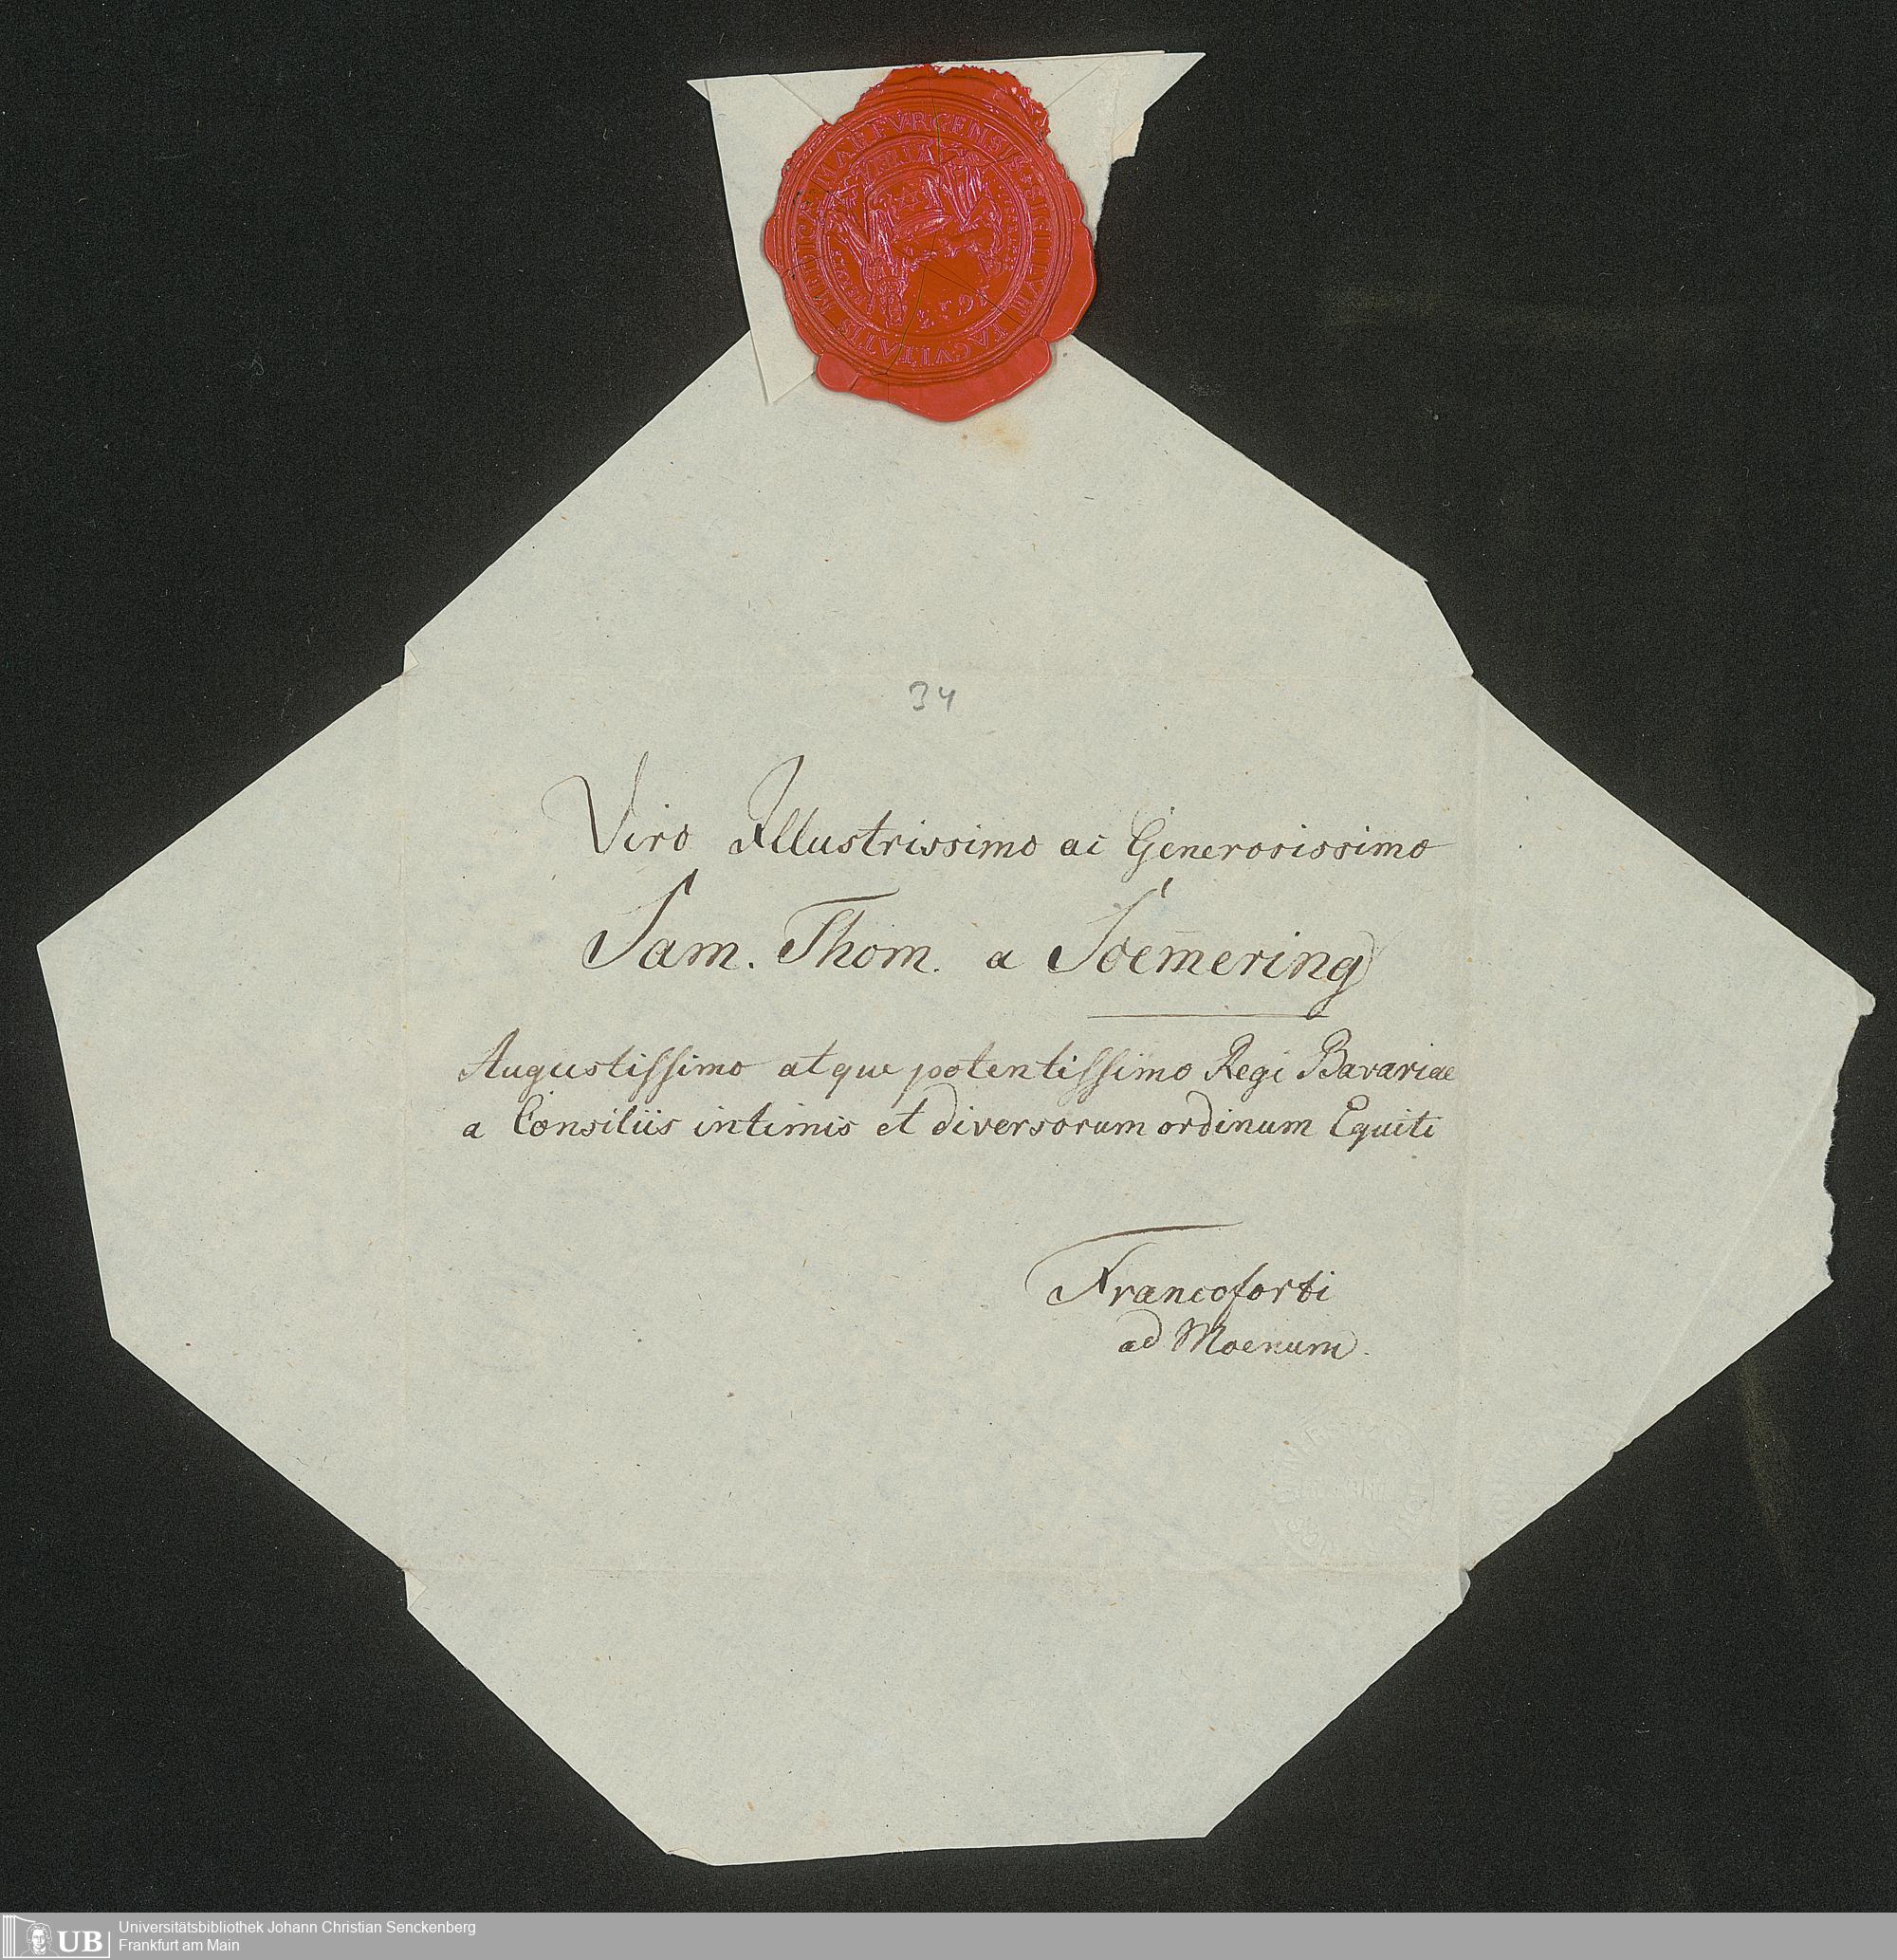 SIGILLVM FACVLTATIS MEDICÆ MARPVRGENSIS
34
Viro Illustrissimo ac Generosissimo
Sam. Thom. a Soem̄ering
Augustiſſimo atque potentiſſimo Regi Bavariae
a Consiliis intimis et diversorum ordinum Equiti
Francoforti
ad Moenum.
UB
Universitätsbibliothek Johann Christian Senckenberg
Frankfurt am Main